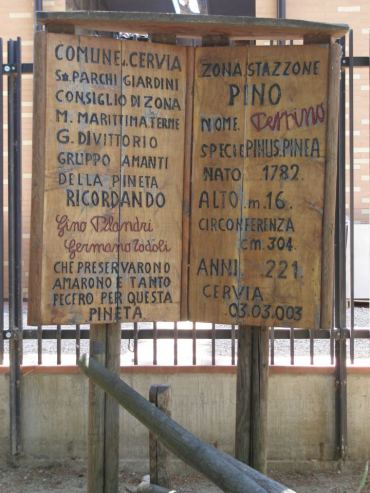 COMUNE DI CERVIA
PARCHI GIARDINI
CONSIGLIO DI ZONA
M. MARITTIMA TERME
G. DI VITTORIO
GRUPPO AMANTI
DELLA PINETA
RICORDANDO
Gino Pilandri
Germano Todoli
CHE PRESERVARONO
AMARONO E TANTO
FECERO PER QUESTA
PINETA
ZONA STAZZONE
PINO
NOME
SPECIE PINUS. PINEA
NATO 1782.
ALTO. m. 16.
CIRCONFERENZA
c m. 304.
ANNI. 221.
CERVIA
03.03.003